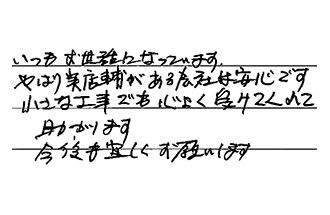 いつもお世話になっています。
やはり実店舗がある会社は安心です
小さな工事でも心よく受けてくれて
助かります
今後も宜しくお願いします